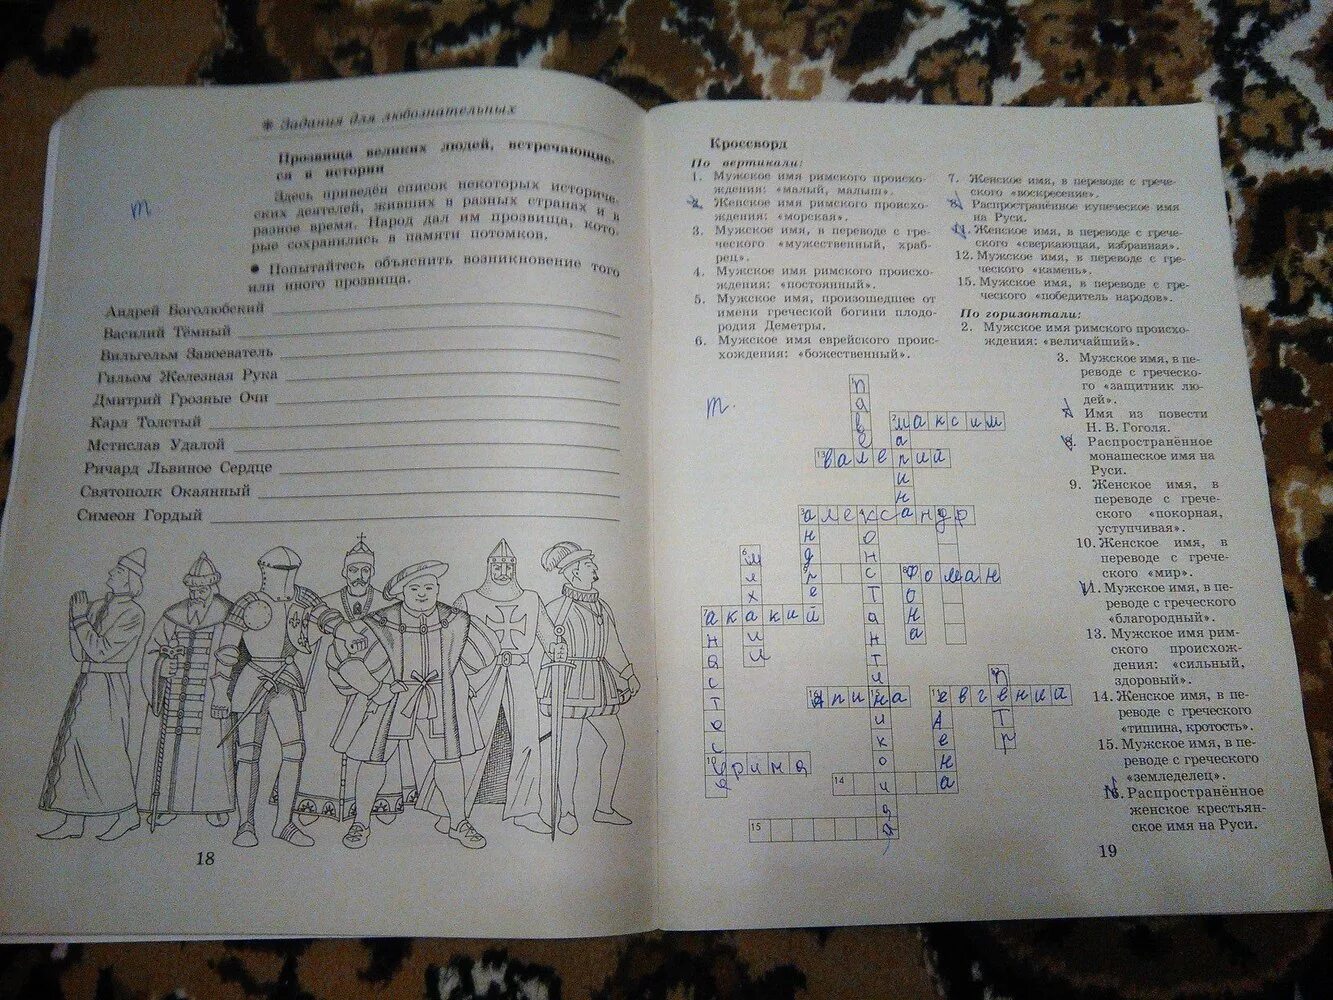 * Задания для любознательных
Прозвища великих людей, встречающие-
ся в истории
Здесь приведён список некоторых историче-
ских деятелей, живших в разных странах и в
разное время. Народ дал им прозвища, кото-
рые сохранились в памяти потомков.
• Попытайтесь объяснить возникновение того
или иного прозвища.
Андрей Боголюбский
Василий Тёмный
Вильгельм Завоеватель
Гильом Железная Рука
Дмитрий Грозные Очи
Карл Толстый
Мстислав Удалой
Ричард Львиное Сердце
Святополк Окаянный
Симеон Гордый
18
Кроссворд
По вертикали:
1. Мужское имя римского происхо-
ждения: «малый, малыш».
2. Женское имя римского происхо-
ждения: «морская».
3. Мужское имя, в переводе с гре-
ческого «мужественный, храб-
рец».
4. Мужское имя римского происхо-
ждения: «постоянный».
5. Мужское имя, произошедшее от
имени греческой богини плодо-
родия Деметры.
6. Мужское имя еврейского проис-
хождения: «божественный».
7. Женское имя, в переводе с грече-
ского «воскресение».
8. Распространённое купеческое имя
на Руси.
11. Женское имя, в переводе с грече-
ского «сверкающая, избранная».
12. Мужское имя, в переводе с гре-
ческого «камень».
15. Мужское имя, в переводе с гре-
ческого «победитель народов».
По горизонтали:
2. Мужское имя римского происхо-
ждения: «величайший».
3. Мужское имя, в пе-
реводе с греческо-
го «защитник лю-
дей».
Имя из повести
Н. В. Гоголя.
8. Распространённое
монашеское имя на
Руси.
9. Женское имя, в
переводе с грече-
ского «покорная,
уступчивая».
10. Женское имя, в
переводе с грече-
ского «мир».
11. Мужское имя, в пе-
реводе с греческого
«благородный».
13. Мужское имя рим-
ского происхож-
дения: «сильный,
здоровый».
14. Женское имя, в пе-
реводе с греческого
«тишина, кротость».
15. Мужское имя, в пе-
реводе с греческого
«земледелец».
16. Распространённое
женское крестьян-
ское имя на Руси.
максим
валерий
александр
акакий
евгений
14
15
19